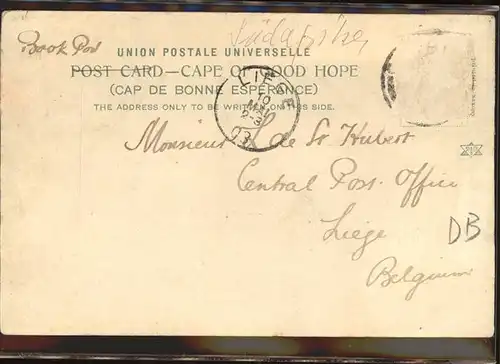 Südafrika
Book Post
UNION POSTALE UNIVERSELLE
POST CARD—CAPE OF GOOD HOPE
(CAP DE BONNE ESPÉRANCE)
THE ADDRESS ONLY TO BE WRITTEN ON THIS SIDE.
LIEGE
10
MAI
Monsieur L de St Hubert
Central Post Office
Liege
DB
Belgium